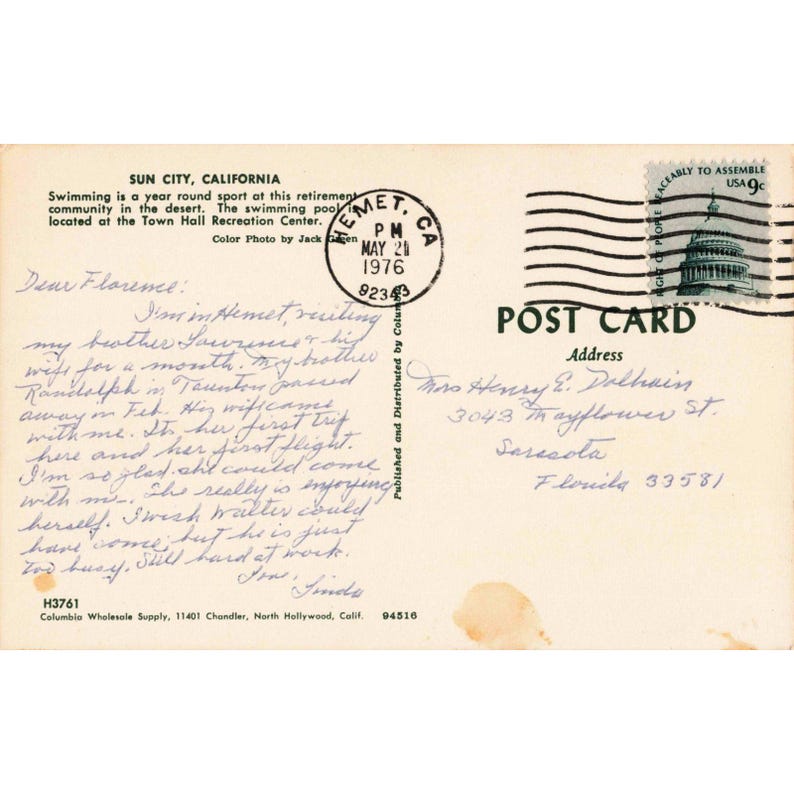 SUN CITY, CALIFORNIA
Swimming is a year round sport at this retirement
community in the desert. The swimming pool is
located at the Town Hall Recreation Center.
Color Photo by Jack Green
Dear Florence:
I'm in Hemet, visiting
my brother Lawrence & his
wife for a month. My brother
Randolph in Taunton passed
away in Feb. His wife came
with me. Its her first trip
here and her first flight.
I'm so glad she could come
with me. She really is enjoying
herself. I wish Walter could
have come, but he is just
too busy. Still hard at work.
Love,
Linda
H3761
Columbia Wholesale Supply, 11401 Chandler, North Hollywood, Calif. 94516
Published and Distributed by
HEMET, CA
PM
MAY 21
1976
92343
RIGHT OF PEOPLE PEACEABLY TO ASSEMBLE
USA 9c
POST CARD
Address
Mrs Henry E. Dolhain
3043 Mayflower St.
Sarasota
Florida 33581